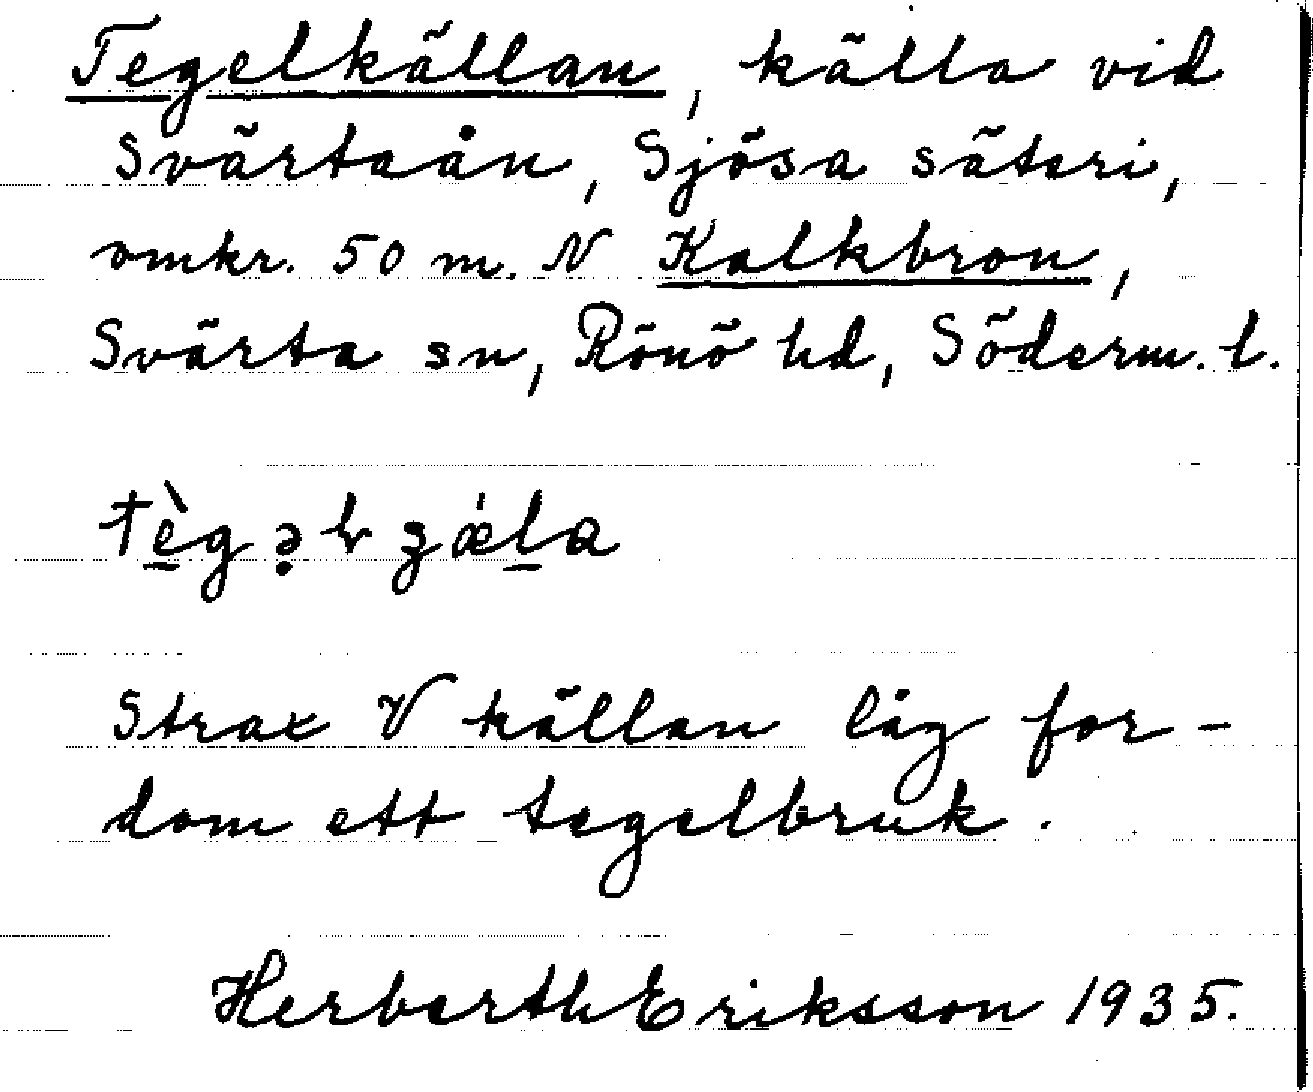 Tegelkällan, källa vid
Svärtaån, Sjösa säteri,
omkr. 50 m. N Kalkbron,
Svärta sn, Rönö hd, Söderm. l.
Strax V källan låg for-
dom ett tegelbruk.
Herberth Eriksson 1935.